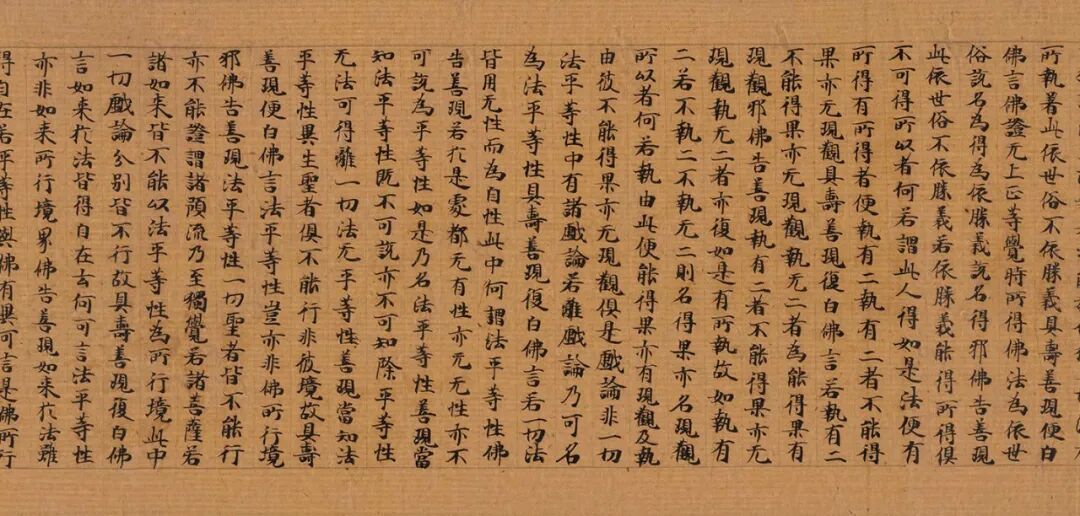 所執著此依世俗不依勝義具壽善現便白
佛言佛證无上正等覺時所得佛法為依世
俗說名為得為依勝義說名得邪佛告善現
此依世俗不依勝義若依勝義能得所得俱
不可得所以者何若謂此人得如是法便有
所得有所得者便執有二執有二者不能得
果亦无現觀具壽善現復白佛言若執有二
不能得果亦无現觀執无二者為能得果有
現觀邪佛告善現執有二者不能得果亦无
現觀執无二者亦復如是有所執故如執有
二若不執二不執无二則名得果亦名現觀
所以者何若執由此便能得果亦有現觀及執
由彼不能得果亦无現觀俱是戲論非一切
法平等性中有諸戲論若離戲論乃可名
為法平等性具壽善現復白佛言若一切法
皆用无性而為自性此中何謂法平等性佛
告善現若於是處都无有性亦无无性亦不
可說為平等性如是乃名法平等性善現當
知法平等性既不可說亦不可知除平等性
无法可得離一切法无平等性善現當知法
平等性異生聖者俱不能行非彼境故具壽
善現便白佛言法平等性豈亦非佛所行境
邪佛告善現法平等性一切聖者皆不能行
亦不能證謂諸預流乃至獨覺若諸菩薩若
諸如来皆不能以法平等性為所行境此中
一切戲論分別皆不行故具壽善現復白佛
言如来於法皆得自在云何可言法平等性
亦非如来所行境界佛告善現如来於法雖
得自在若平等性與佛有異可言是佛所行